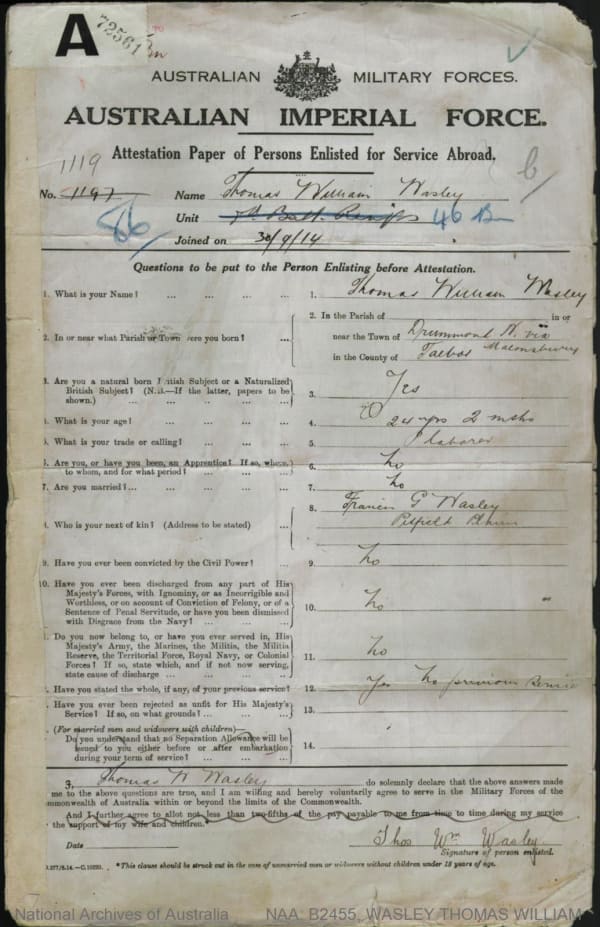 A
72561
AUSTRALIAN MILITARY FORCES.
AUSTRALIAN IMPERIAL FORCE.
Attestation Paper of Persons Enlisted for Service Abroad.
1119
No. 1197 Name Thomas William Wasley
Unit 46 Bn
Joined on 30/9/14
Questions to be put to the Person Enlisting before Attestation.
1. What is your Name? ... ... ... ... 1. Thomas William Wasley
2. In or near what Parish or Town were you born? ... 2. In the Parish of in or
near the Town of Drummond N. via
in the County of Talbot Malmsbury
3. Are you a natural born British Subject or a Naturalized
British Subject? (N.B.—If the latter, papers to be
shown.) ... ... ... ... 3. Yes
4. What is your age? ... ... ... ... 4. 24 yrs 2 mths
5. What is your trade or calling? ... ... ... 5. laborer
6. Are you, or have you been, an Apprentice? If so, where,
to whom, and for what period? ... ... ... 6. No
7. Are you married? ... ... ... ... ... 7. No
8. Who is your next of kin? (Address to be stated) ... 8. Francis G Wasley
Pitfield Plains
9. Have you ever been convicted by the Civil Power? ... 9. No
10. Have you ever been discharged from any part of His
Majesty's Forces, with Ignominy, or as Incorrigible and
Worthless, or on account of Conviction of Felony, or of a
Sentence of Penal Servitude, or have you been dismissed
with Disgrace from the Navy? ... ... ... 10. No
Do you now belong to, or have you ever served in, His
Majesty's Army, the Marines, the Militia, the Militia
Reserve, the Territorial Force, Royal Navy, or Colonial
Forces? If so, state which, and if not now serving,
state cause of discharge ... ... ... ... 11. No
Have you stated the whole, if any, of your previous service? 12. Yes No previous Service
Have you ever been rejected as unfit for His Majesty's
Service? If so, on what grounds? ... ... ... 13.
(For married men and widowers with children)—
Do you understand that no Separation Allowance will be
issued to you either before or after embarkation
during your term of service? ... ... ... 14.
3, Thomas W Wasley do solemnly declare that the above answers made
me to the above questions are true, and I am willing and hereby voluntarily agree to serve in the Military Forces of the
mmonwealth of Australia within or beyond the limits of the Commonwealth.
And I further agree to allot not less than two-fifths of the pay payable to me from time to time during my service
the support of my wife and children.*
Date Thos Wm Wasley
Signature of person enlisted.
*This clause should be struck out in the case of unmarried men or widowers without children under 18 years of age.
National Archives of Australia NAA: B2455, WASLEY THOMAS WILLIAM